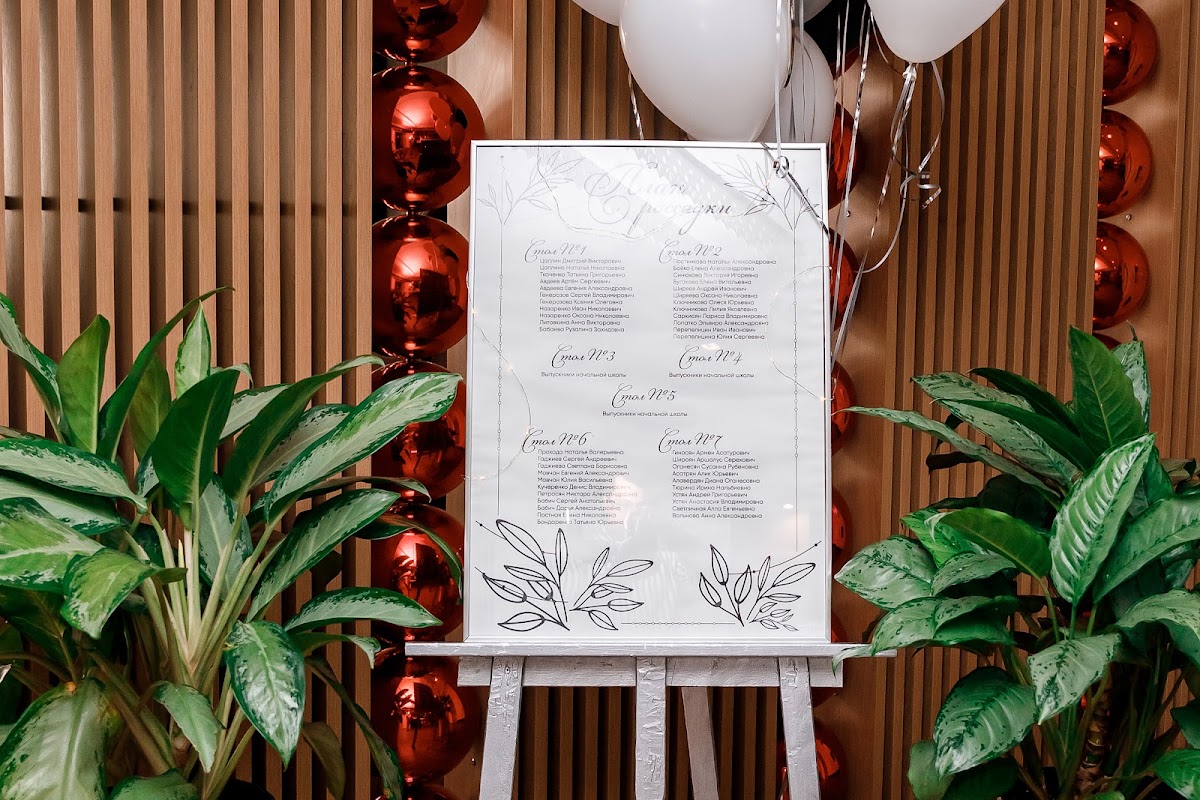 План
рассадки
Стол №1
Цаплин Дмитрий Викторович
Цаплина Наталья Николаевна
Ткаченко Татьяна Григорьевна
Авдеев Артём Сергеевич
Авдеева Евгения Александровна
Генерозов Сергей Владимирович
Генерозова Ксения Олеговна
Назаренко Иван Николаевич
Назаренко Оксана Николаевна
Литовкина Анна Викторовна
Бабаева Рузалина Захидовна
Стол №2
Постникова Наталья Александровна
Бойко Елена Александровна
Синькова Виктория Игоревна
Бугакова Елена Витальевна
Ширяев Андрей Иванович
Ширяева Оксана Николаевна
Ключникова Олеся Юрьевна
Ключникова Лилия Яковлевна
Саркисян Лариса Владимировна
Лопатко Эльвира Александровна
Перепелицин Иван Иванович
Перепелицина Юлия Сергеевна
Стол №3
Выпускники начальной школы
Стол №4
Выпускники начальной школы
Стол №5
Выпускники начальной школы
Стол №6
Прохода Наталья Валерьевна
Гаджиев Сергей Андреевич
Гаджиева Светлана Борисовна
Мовчан Евгений Александрович
Мовчан Юлия Васильевна
Кучеренко Денис Владимирович
Петросян Нектара Александровна
Бабич Сергей Анатольевич
Бабич Дарья Александровна
Постная Елена Николаевна
Бондарева Татьяна Юрьевна
Стол №7
Гиносян Арнен Асатурович
Широян Аршалус Серехович
Оганесян Сусанна Рубеновна
Асатрян Алик Юрьевич
Алавердян Диана Оганесовна
Тюрина Ирина Нальбиевна
Устян Андрей Григорьевич
Устян Анастасия Владимировна
Светличная Алла Евгеньевна
Волынова Анна Александровна